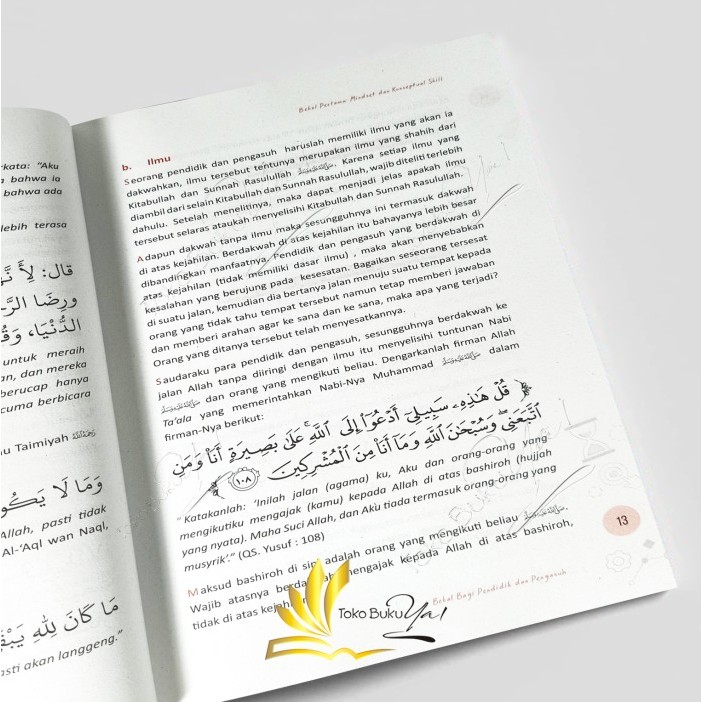 rkata: "Aku
bahwa ia
bahwa ada
lebih terasa
قال: لِأَ
ورِضَا
الدُّنْيَا، وَ
untuk meraih
an, dan mereka
berucap hanya
cuma berbicara
nu Taimiyah رحمه الله
وَمَا لَا يَكُو
Allah, pasti tidak
Al-'Aql wan Naql,
مَا كَانَ لِلّٰهِ يَبْقَ
asti akan langgeng."
Bekal Pertama: Mindset dan Konseptual Skill
b. Ilmu
Seorang pendidik dan pengasuh haruslah memiliki ilmu yang akan ia
dakwahkan, ilmu tersebut tentunya merupakan ilmu yang shahih dari
Kitabullah dan Sunnah Rasulullah ﷺ. Karena setiap ilmu yang
diambil dari selain Kitabullah dan Sunnah Rasulullah, wajib diteliti terlebih
dahulu. Setelah menelitinya, maka dapat menjadi jelas apakah ilmu
tersebut selaras ataukah menyelisihi Kitabullah dan Sunnah Rasulullah.
Adapun dakwah tanpa ilmu maka sesungguhnya ini termasuk dakwah
di atas kejahilan. Berdakwah di atas kejahilan itu bahayanya lebih besar
dibandingkan manfaatnya. Pendidik dan pengasuh yang berdakwah di
atas kejahilan (tidak memiliki dasar ilmu) , maka akan menyebabkan
kesalahan yang berujung pada kesesatan. Bagaikan seseorang tersesat
di suatu jalan, kemudian dia bertanya jalan menuju suatu tempat kepada
orang yang tidak tahu tempat tersebut namun tetap memberi jawaban
dan memberi arahan agar ke sana dan ke sana, maka apa yang terjadi?
Orang yang ditanya tersebut telah menyesatkannya.
Saudaraku para pendidik dan pengasuh, sesungguhnya berdakwah ke
jalan Allah tanpa diiringi dengan ilmu itu menyelisihi tuntunan Nabi
ﷺ dan orang yang mengikuti beliau. Dengarkanlah firman Allah
Ta'ala yang memerintahkan Nabi-Nya Muhammad ﷺ dalam
firman-Nya berikut:
﴿ قُلْ هَٰذِهِۦ سَبِيلِيٓ أَدْعُوٓا۟ إِلَى ٱللَّهِ ۚ عَلَىٰ بَصِيرَةٍ أَنَا۠ وَمَنِ
ٱتَّبَعَنِى ۖ وَسُبْحَٰنَ ٱللَّهِ وَمَآ أَنَا۠ مِنَ ٱلْمُشْرِكِينَ ١٠٨ ﴾
" Katakanlah: 'Inilah jalan (agama) ku, Aku dan orang-orang yang
mengikutiku mengajak (kamu) kepada Allah di atas bashiroh (hujjah
yang nyata). Maha Suci Allah, dan Aku tiada termasuk orang-orang yang
musyrik'." (QS. Yusuf : 108)
Maksud bashiroh di sini adalah orang yang mengikuti beliau ﷺ.
Wajib atasnya mengajak kepada Allah di atas bashiroh,
tidak di atas
13
Bekal Bagi Pendidik dan Pengasuh
Toko Buku Yal